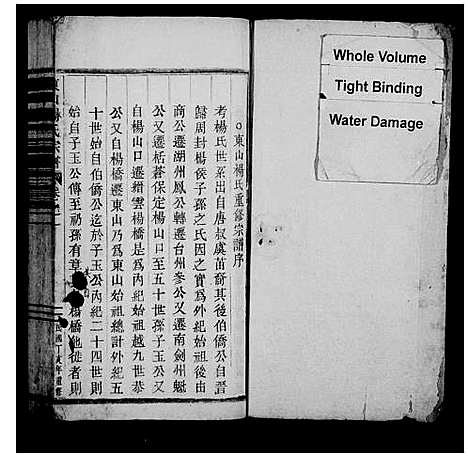 Whole Volume
Tight Binding
Water Damage
東山楊氏重修宗譜序
考楊氏世系出自唐叔虞苗裔其後伯僑公自晉
歸周封楊侯子孫之氏因之實為外紀始祖後由
商公又遷湖州鳳公轉遷台州參公又遷南劍州魁
公又遷栝蒼保定楊山口至五十世孫子玉公又
自楊山口遷縉雲楊橋是為內紀始祖越九世恭
公又自楊橋遷東山乃為東山始祖總計外紀五
十世始自伯僑公迄於子玉公內紀二十四世則
始自子玉公傳至礽孫有章楊橋也徙者則